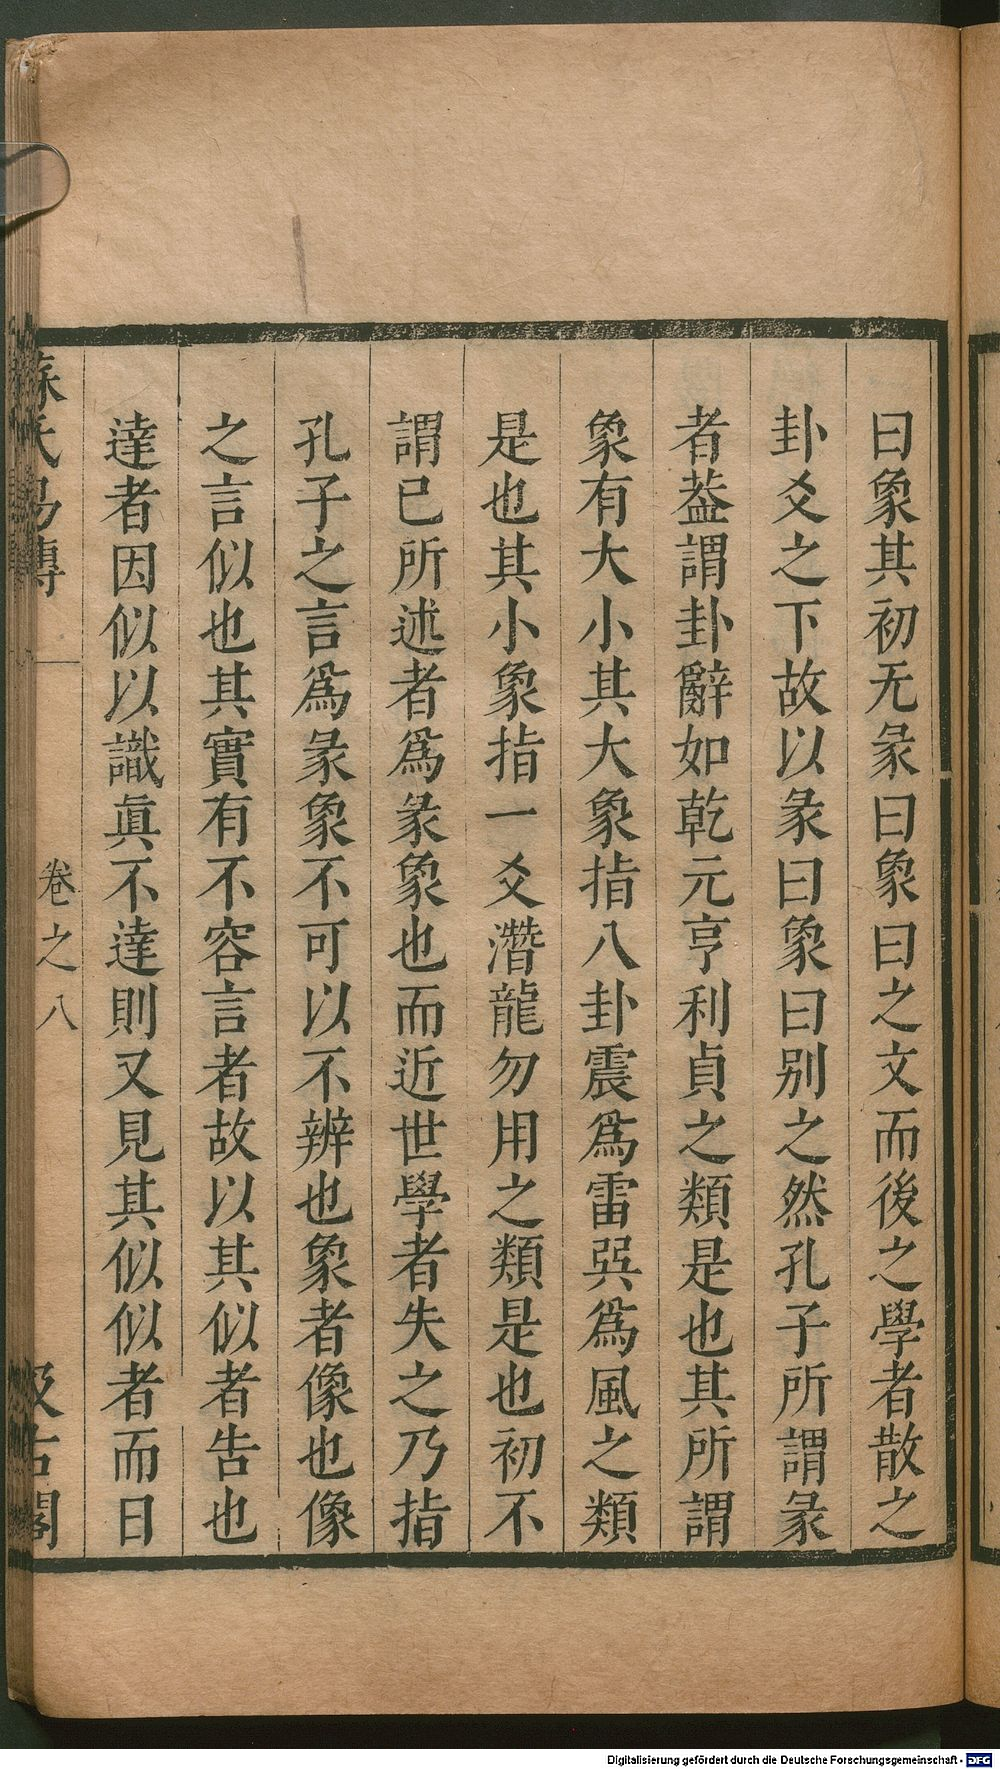 曰象其初无彖曰象曰之文而後之學者散之
卦爻之下故以彖曰象曰别之然孔子所謂彖
者葢謂卦辭如乾元亨利貞之類是也其所謂
象有大小其大象指八卦震爲雷巽爲風之類
是也其小象指一爻潛龍勿用之類是也初不
謂已所述者爲彖象也而近世學者失之乃指
孔子之言爲彖象不可以不辨也象者像也像
之言似也其實有不容言者故以其似者告也
達者因似以識眞不達則又見其似似者而日
蘇氏易傳
卷之八
汲古閣
Digitalisierung gefördert durch die Deutsche Forschungsgemeinschaft - DFG